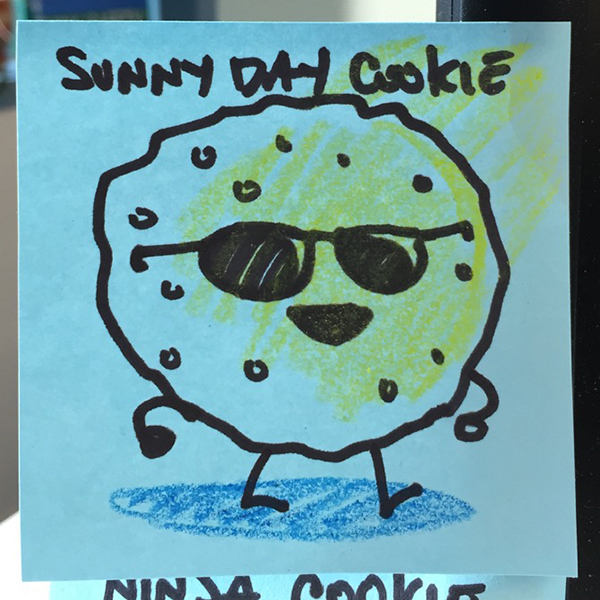 SUNNY DAY COOKIE
NINJA COOKIE